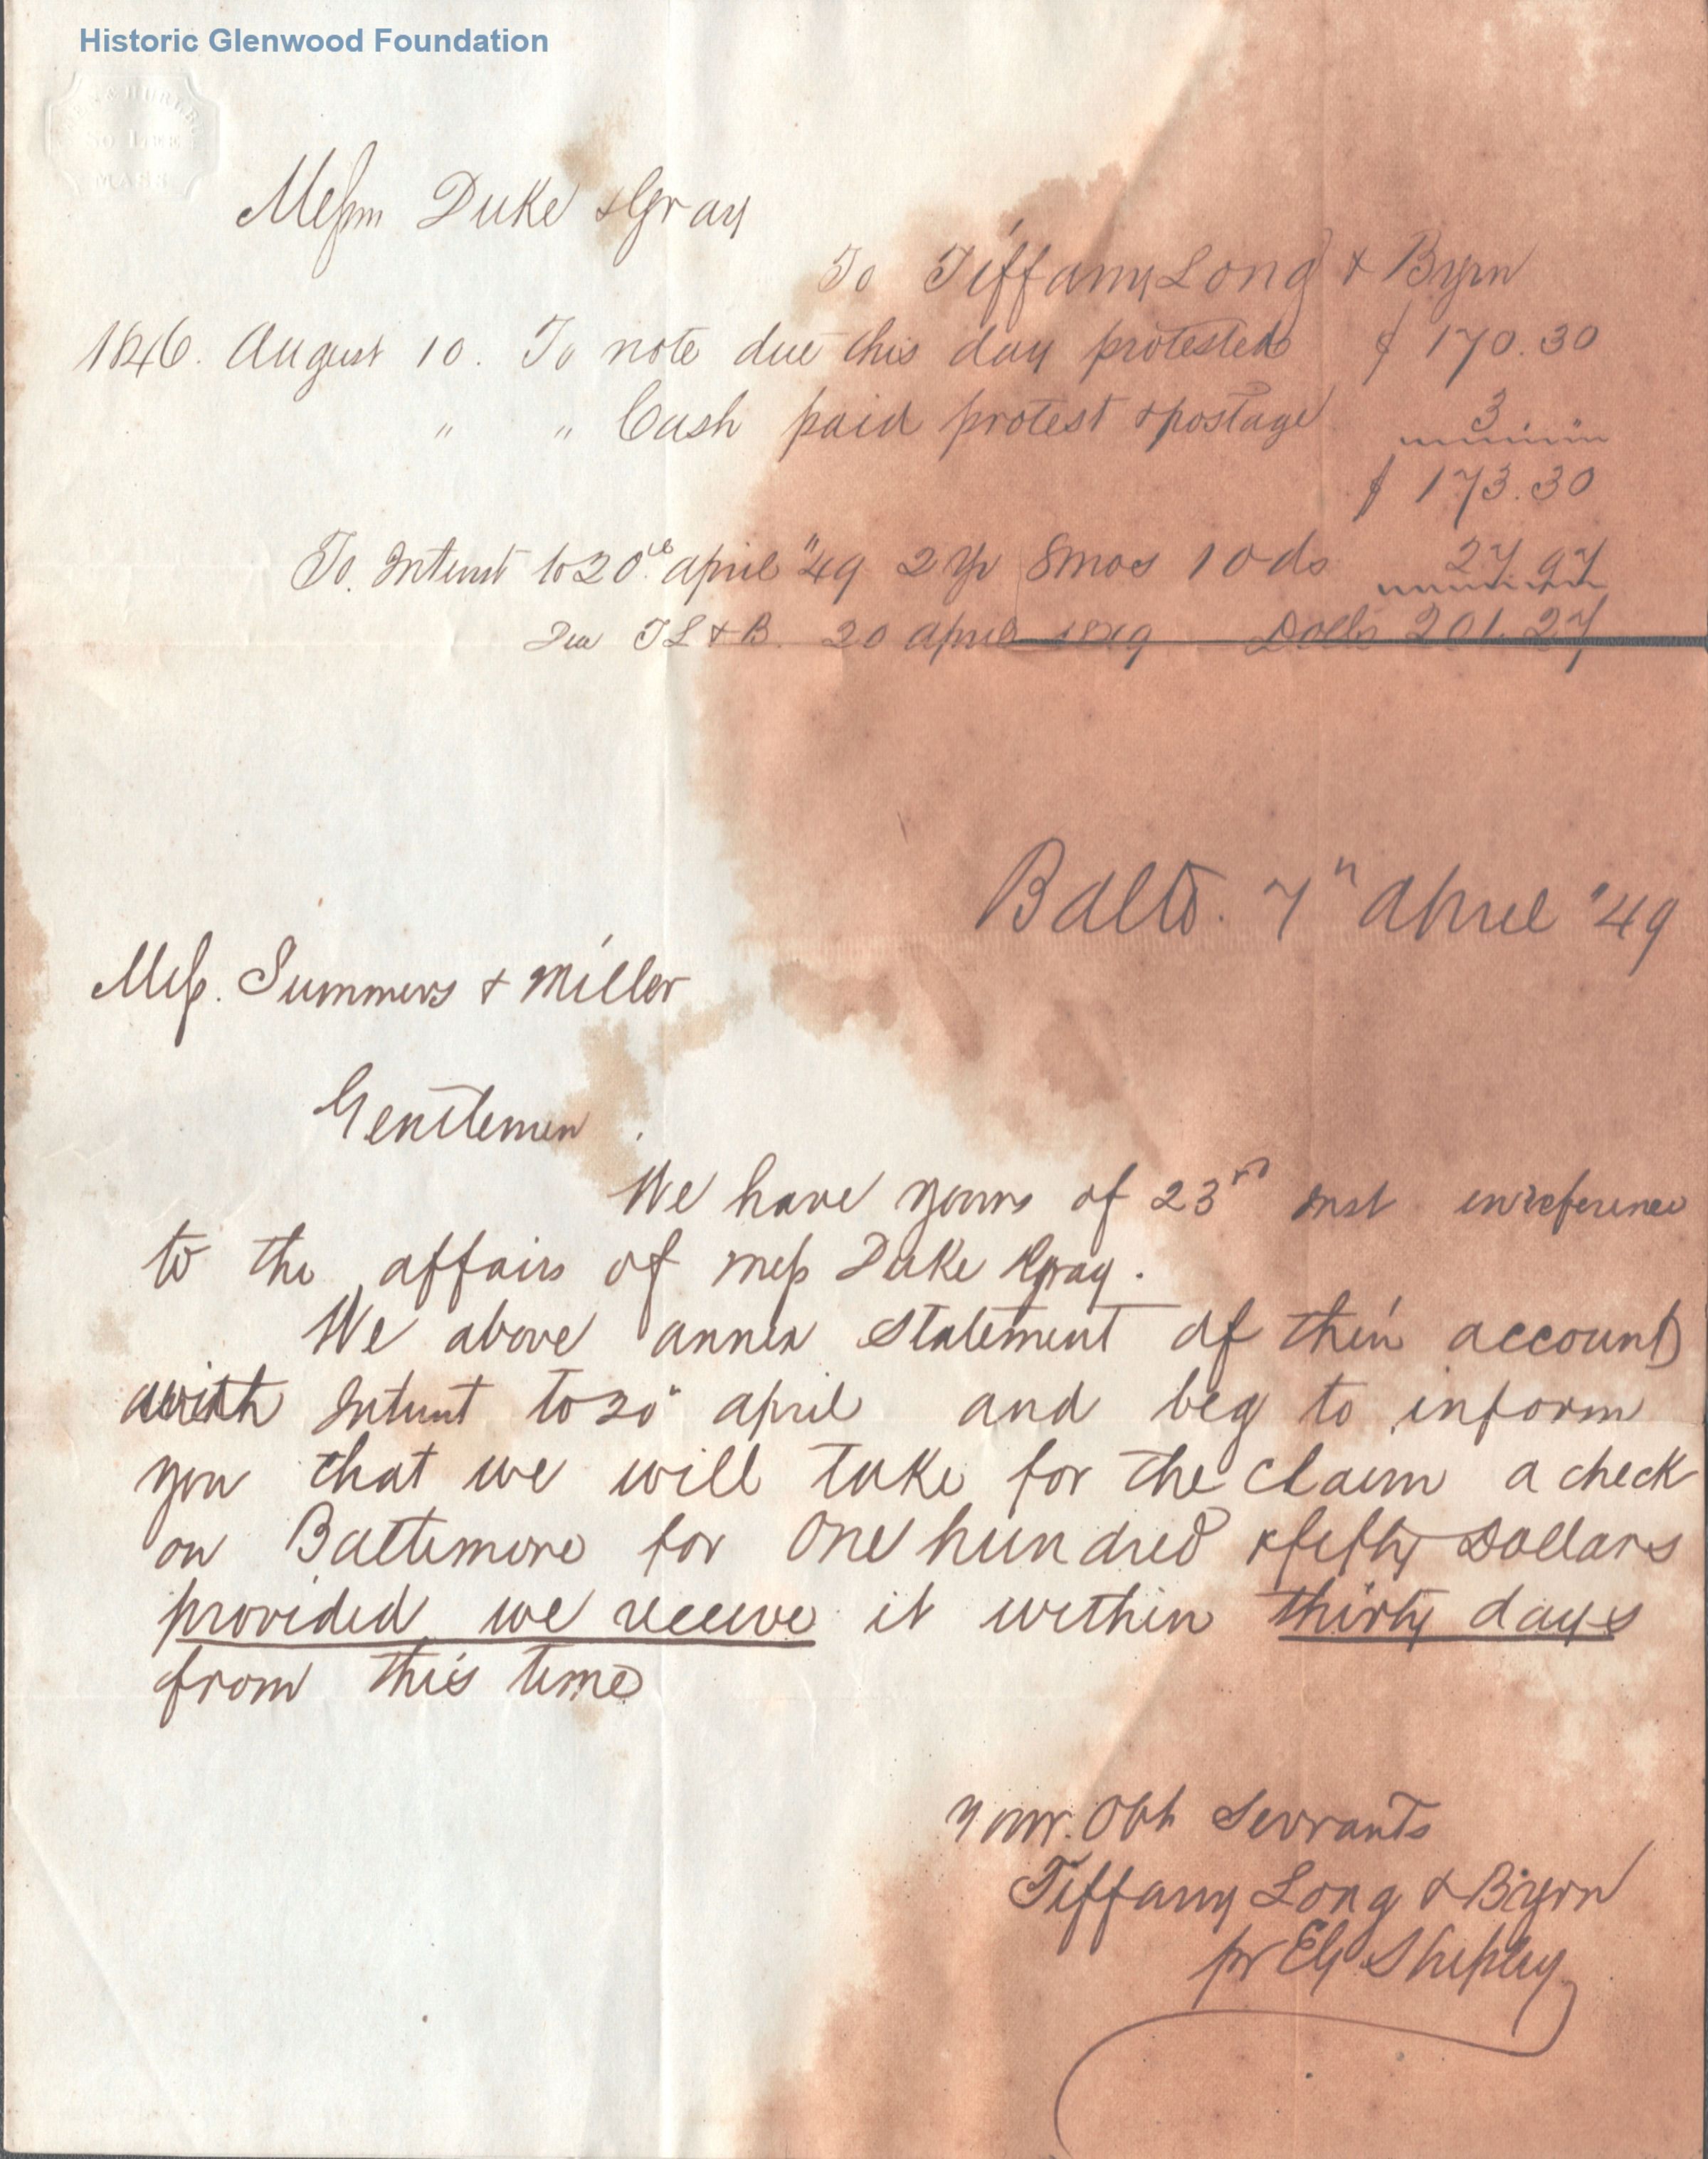 Historic Glenwood Foundation
SO LEE
MASS
Messrs Duke & Gray
To Tiffany Long & Byrn
1846. August 10. To note due this day protested $ 170.30
" " Cash paid protest & postage 3
$ 173.30
To Interest to 20th april "49 2 Yr 8mos 10ds 27.97
Due T L & B. 20 april 1849 Dolls 201.27
Balto. 7" April "49
Mess. Summers & Miller
Gentlemen.
We have yours of 23rd inst in reference
to the affairs of mess Duke & Gray.
We above annex statement of their account
with Interest to 20" april and beg to inform
you that we will take for the claim a check
on Baltimore for One hundred & fifty Dollars
provided we receive it within thirty days
from this time
Your Obt Servants
Tiffany Long & Byrn
pr EG Shipley